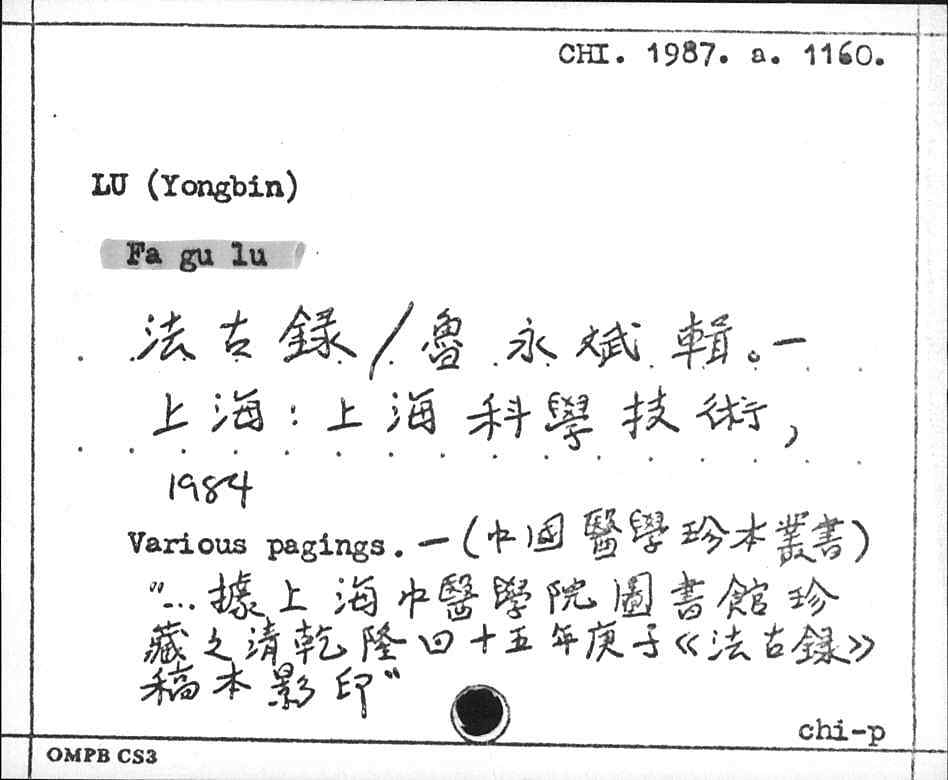 CHI. 1987. a. 1160.
LU (Yongbin)
Fa gu lu
法古録/魯永斌輯。—
上海:上海科學技術,
1984
Various pagings. — (中国醫學珍本叢書)
"...據上海中醫學院圖書館珍
藏之清乾隆四十五年庚子《法古録》
稿本影印"
chi-p
OMPB CS3